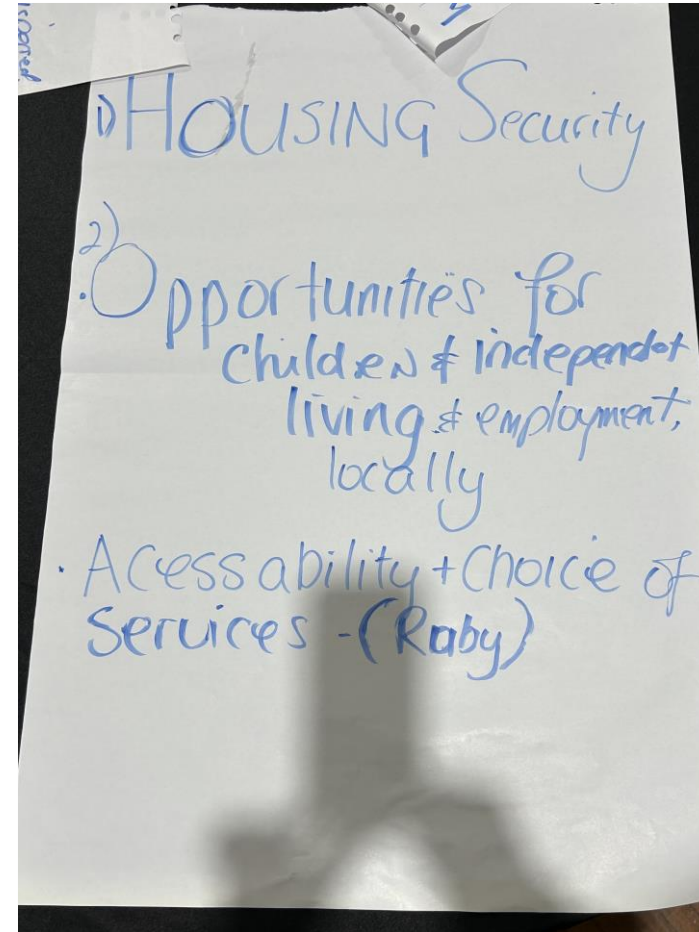 1) HOUSING Security
2)
. Opportunities for
children & independet
living & employment,
locally
. Acessability + Choice of
Services - (Raby)